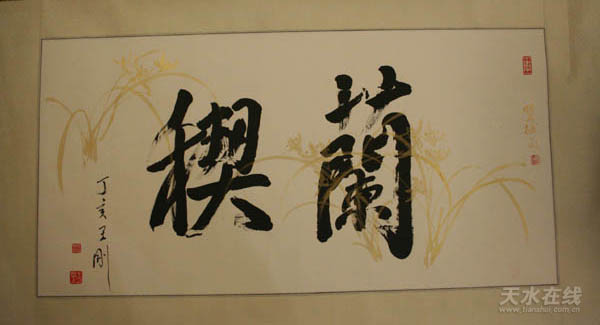 蘭稧
丁亥王刚
天水在线
www.tianshui.com.cn